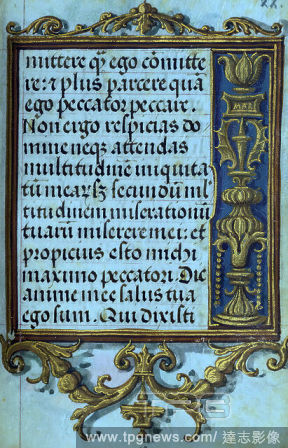 mittere q̄ ego cōmitte
re: ⁊ plus parcere quā
ego peccator peccare.
Non ergo respicias do
mine neqȝ attendas
multitudinē iniquita
tū mearȝ secundū ml̄
titudinem miserationū
tuarū miserere mei: et
propicius esto michi
maximo peccatori. Dic
anime mee salus tua
ego sum. Qui dixisti
MAR
www.tpgnews.com/ 達志影像